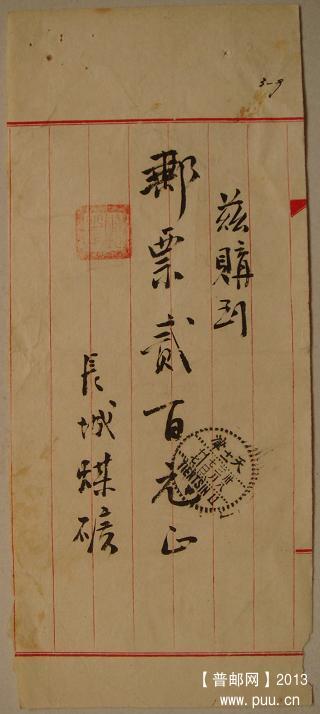 兹購到
郵票贰百元正
長城煤礦
3-9
TIENTSIN
【普邮网】2013
www.puu.cn